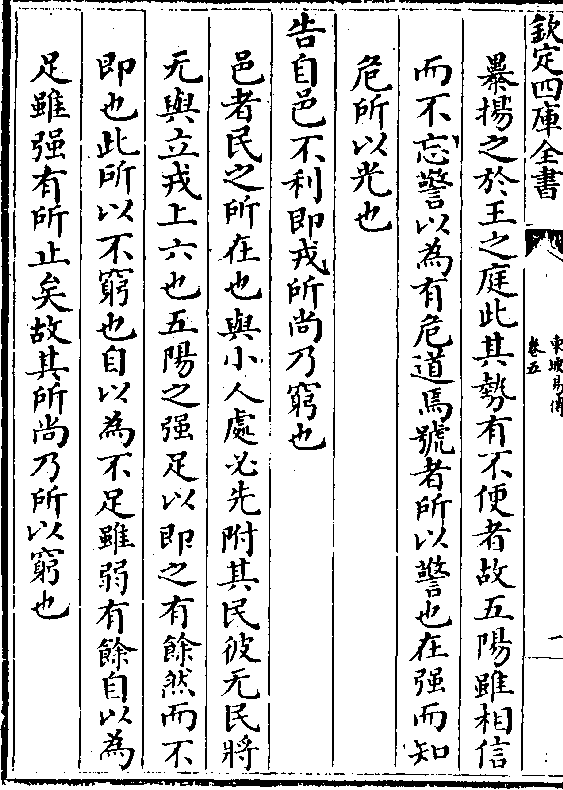 欽定四庫全書
東坡易傳
卷五
一
暴揚之於王之庭此其勢有不便者故五陽雖相信
而不忘警以為有危道焉號者所以警也在强而知
危所以光也
告自邑不利即戎所尚乃窮也
邑者民之所在也與小人處必先附其民彼无民將
无與立戎上六也五陽之强足以即之有餘然而不
即也此所以不窮也自以為不足雖弱有餘自以為
足雖强有所止矣故其所尚乃所以窮也